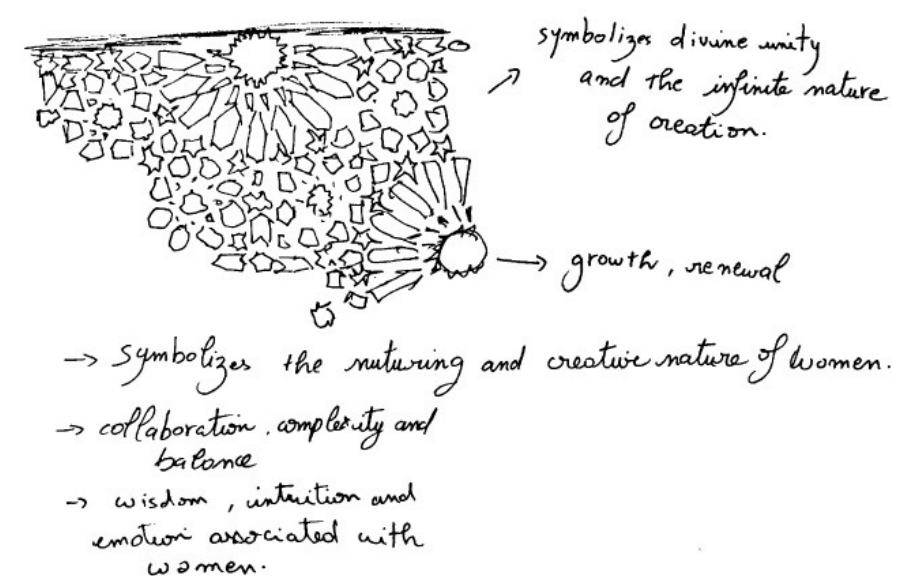 symbolizes divine unity
and the infinite nature
of creation.
growth, renewal
→ symbolizes the nuturing and creative nature of women.
→ collaboration, complexity and
balance
→ wisdom, intuition and
emotion associated with
women.